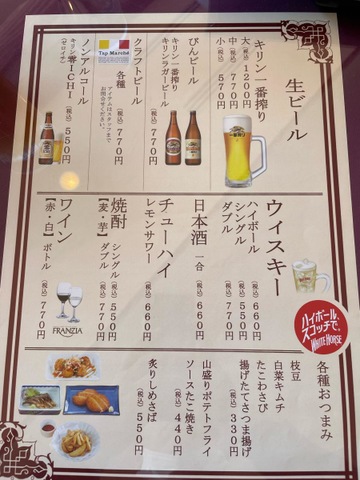 生ビール
キリン一番搾り
大 (税込) 1200円
中 (税込) 770円
小 (税込) 570円
びんビール
キリン一番搾り
キリンラガービール
(税込) 770円
クラフトビール
Tap Marché
各種
(税込) 770円
アイテムはスタッフまで
お問合せください。
ノンアルコール
キリン零ICHI
(ゼロイチ)
(税込) 550円
ウィスキー
ハイボール (税込) 660円
シングル (税込) 550円
ダブル (税込) 770円
ハイボール、
スコッチで。
WHITE HORSE
日本酒
一合 (税込) 660円
チューハイ
レモンサワー
(税込) 660円
焼酎
【麦・芋】
シングル (税込) 550円
ダブル (税込) 770円
ワイン
【赤・白】
ボトル (税込) 770円
FRANZIA
各種おつまみ
枝豆
白菜キムチ
たこわさび
揚げたてさつま揚げ
(税込) 330円
山盛りポテトフライ
ソースたこ焼き
(税込) 440円
炙りしめさば
(税込) 550円